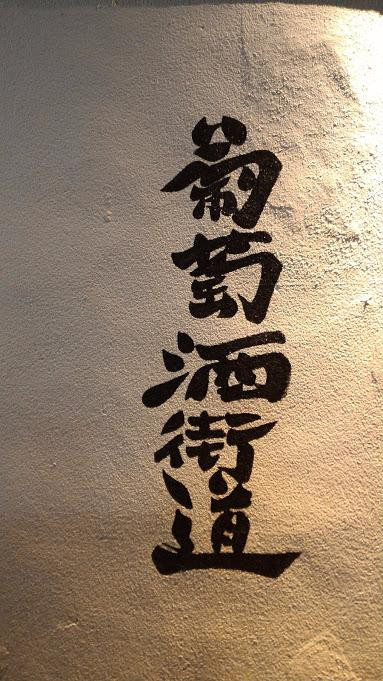 葡萄酒街道